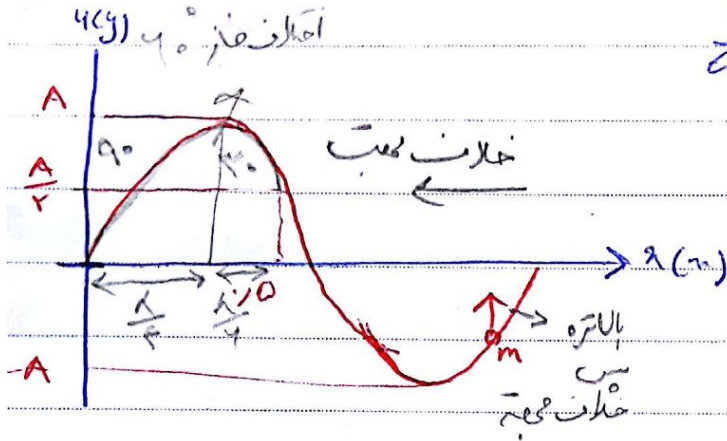 u(y) اختلاف فاز ۶۰°
A
۹۰ ۳۰ خلاف جهت
A/۲
x(m)
λ/۴ λ/۶
m
بالاتره
پس
-A
خلاف جهته